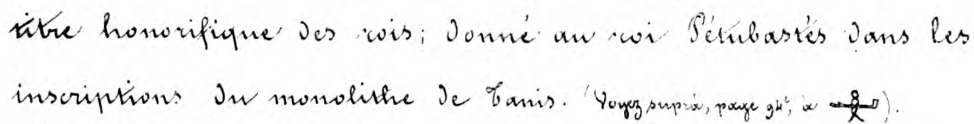 titre honorifique des rois; donné au roi Pétubastès dans les
inscriptions du monolithe de Tanis. (Voyez suprà, page 94, à ).